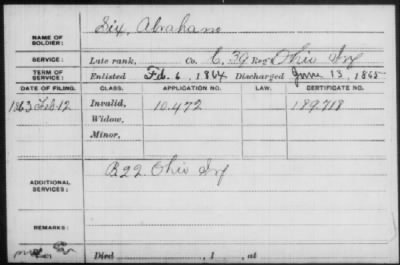 NAME OF SOLDIER: Six, Abraham
SERVICE: Late rank, Co. C, 39 Reg't Ohio Inf
TERM OF SERVICE: Enlisted Feb. 6, 1864 Discharged June 13, 1865
DATE OF FILING. CLASS. APPLICATION NO. LAW. CERTIFICATE NO.
1863 Feb 12 Invalid, 10.472 189.718
Widow,
Minor,
ADDITIONAL SERVICES: B 22. Ohio Inf
REMARKS:
Died , 1 , at